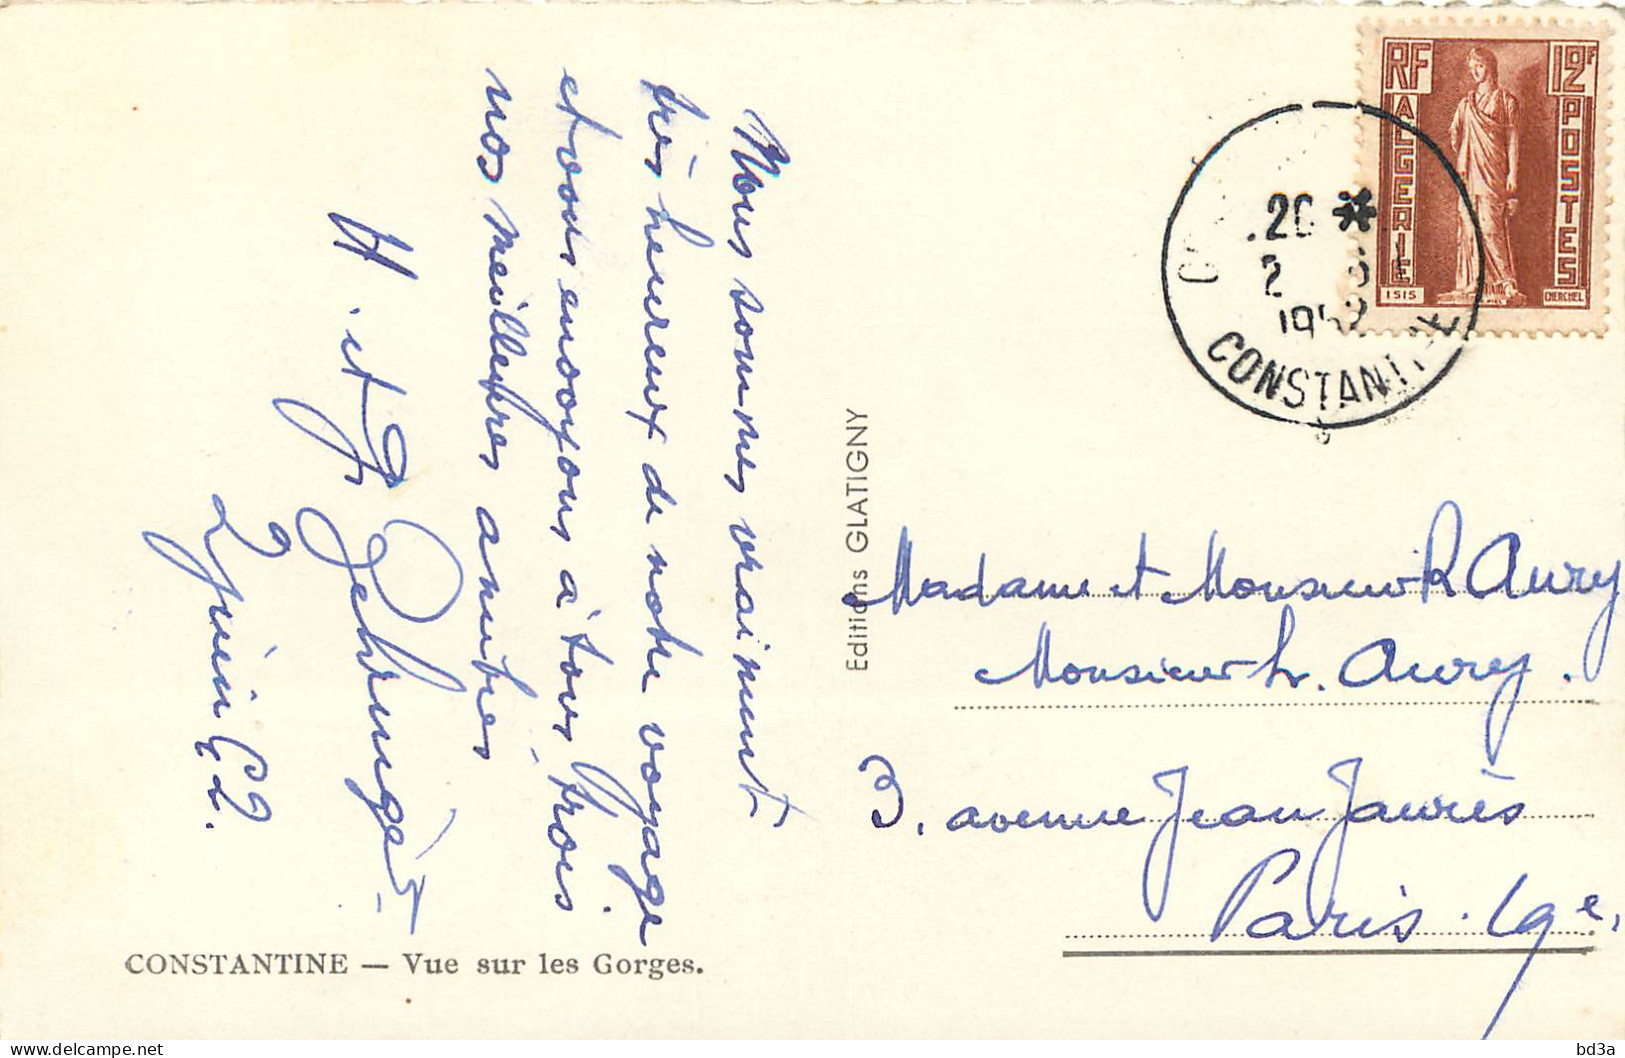 Nous sommes vraiment
très heureux de notre voyage
et vous envoyons à tous trois
nos meilleures amitiés
H. et
2 Juin 52.
CONSTANTINE — Vue sur les Gorges.
Editions GLATIGNY
RF
12F
ALGERIE
POSTES
ISIS
CHERCHEL
20 *
2 6
1952
CONSTANTINE
Madame et Monsieur R Aury
Monsieur h. Aury.
3, avenue Jean Jaurès
Paris. 19e.
bd3a